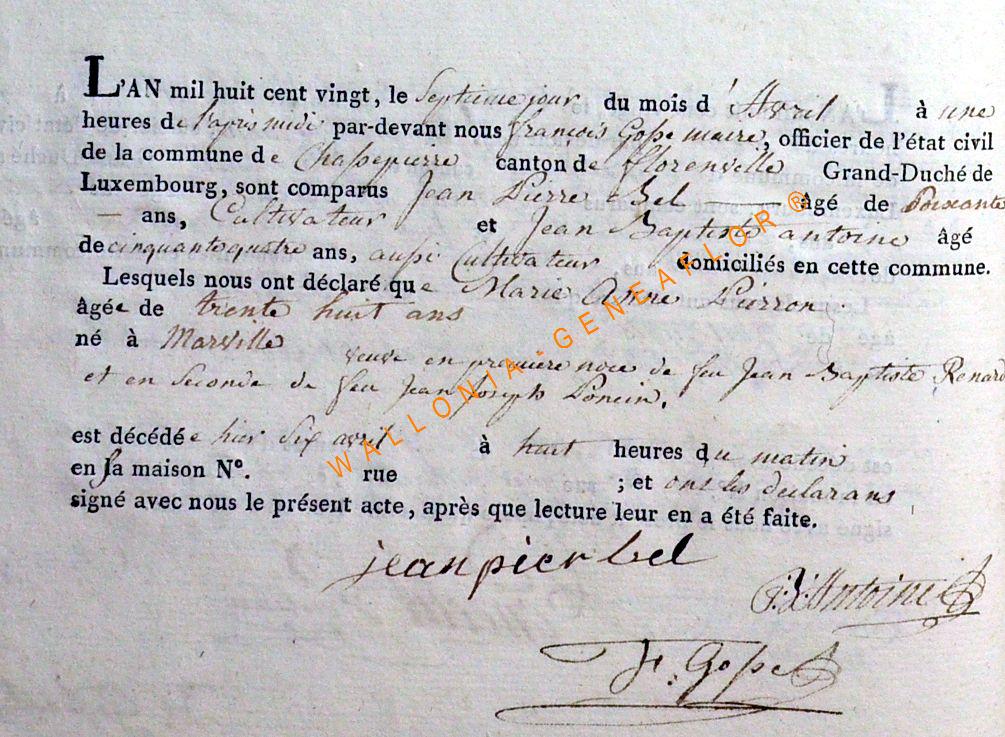 L'AN mil huit cent vingt, le Septième jour du mois d'Avril à une
heures de l'après midi par-devant nous françois Gosse maire, officier de l'état civil
de la commune de Chassepierre canton de florenville Grand-Duché de
Luxembourg, sont comparus Jean Pierre Bel — âgé de Soixante
— ans, Cultivateur et Jean Baptiste antoine âgé
de cinquante quatre ans, aussi Cultivateur domiciliés en cette commune.
Lesquels nous ont déclaré que Marie Anne Pierron
âgée de trente huit ans
né à Marville veuve en premiere noce de feu Jean Baptiste Renard
et en Seconde de feu Jean Joseph Poncin.
est décédée hier Six avril à huit heures du matin
en sa maison N°. rue ; et ont les declarans
signé avec nous le présent acte, après que lecture leur en a été faite.
jean pier bel
J:B:Antoine
F. Gosse
WALLONIA-GENEARLOR®